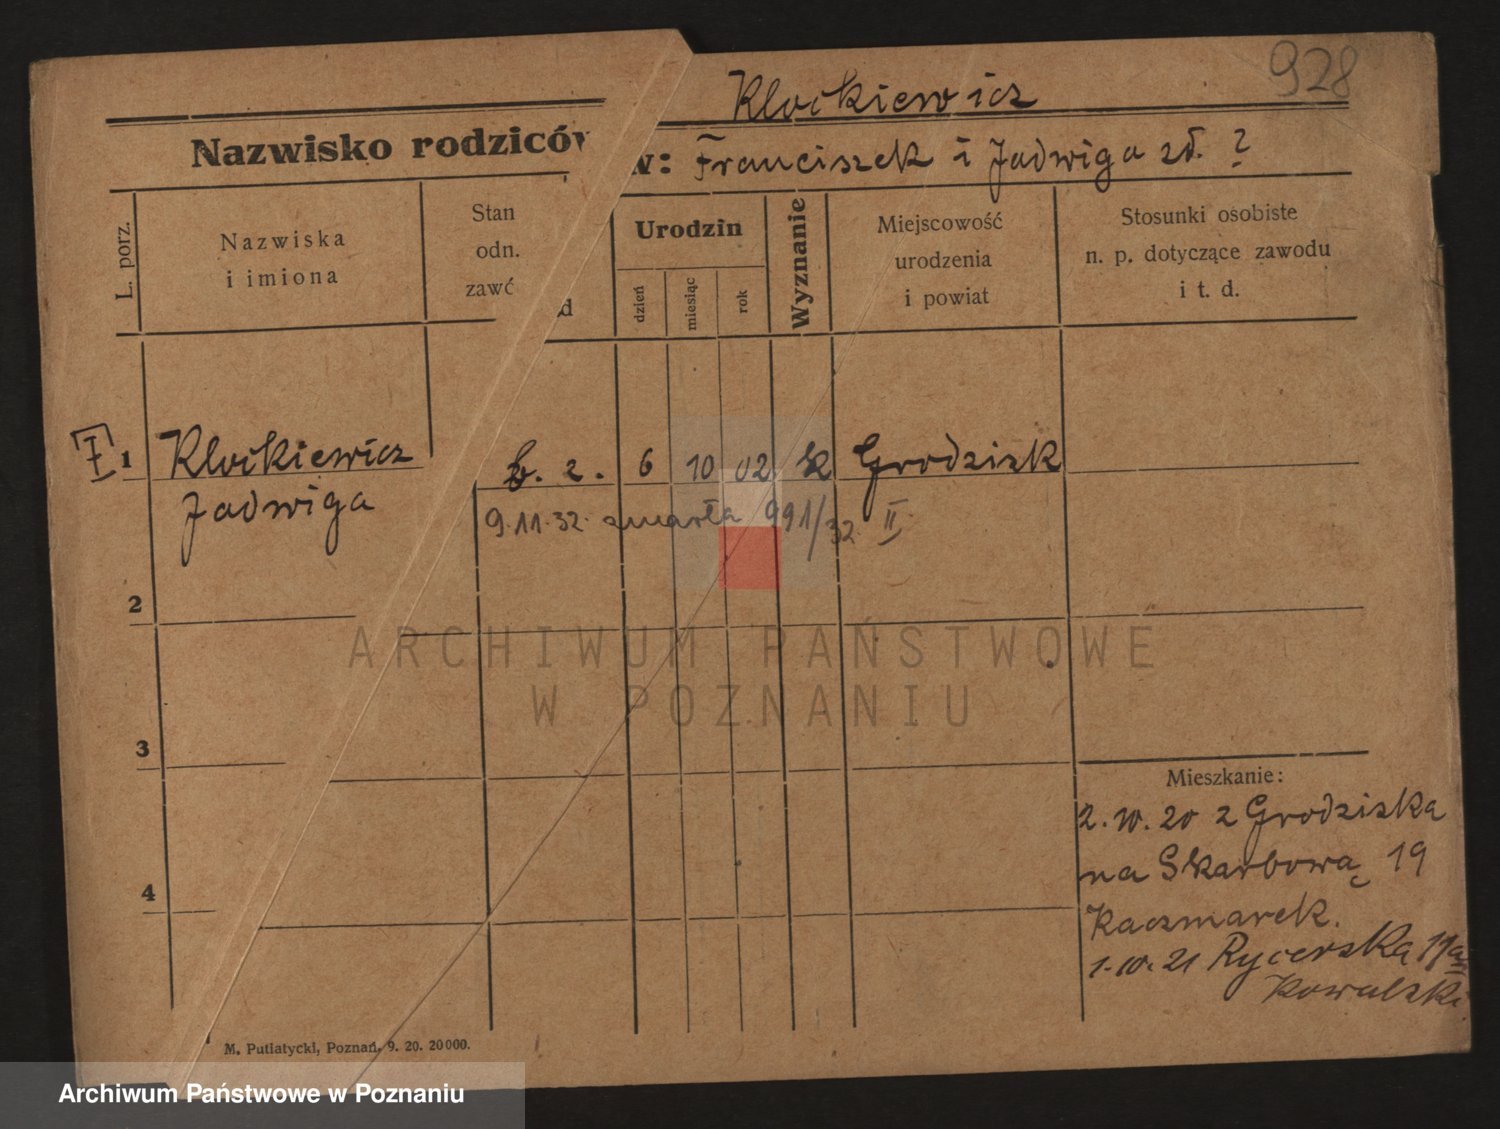 928
Klockiewicz
Nazwisko rodziców w: Franciszek i Jadwiga zd. ?
L. porz.
Nazwiska
i imiona
Stan
odn.
zawć
d
Urodzin
dzień
miesiąc
rok
Wyznanie
Miejscowość
urodzenia
i powiat
Stosunki osobiste
n. p. dotyczące zawodu
i t. d.
1 Klockiewicz b. z. 6 10 02 k Grodzisk
Jadwiga 9.11.32. zmarła 991/32 II
2
3
4
ARCHIWUM PAŃSTWOWE
W POZNANIU
Mieszkanie:
2.10.20 z Grodziska
na Skarbową 19
Kaczmarek.
1.10.21 Rycerska 11a
Kowalski
M. Putiatycki, Poznań. 9. 20. 20000.
Archiwum Państwowe w Poznaniu